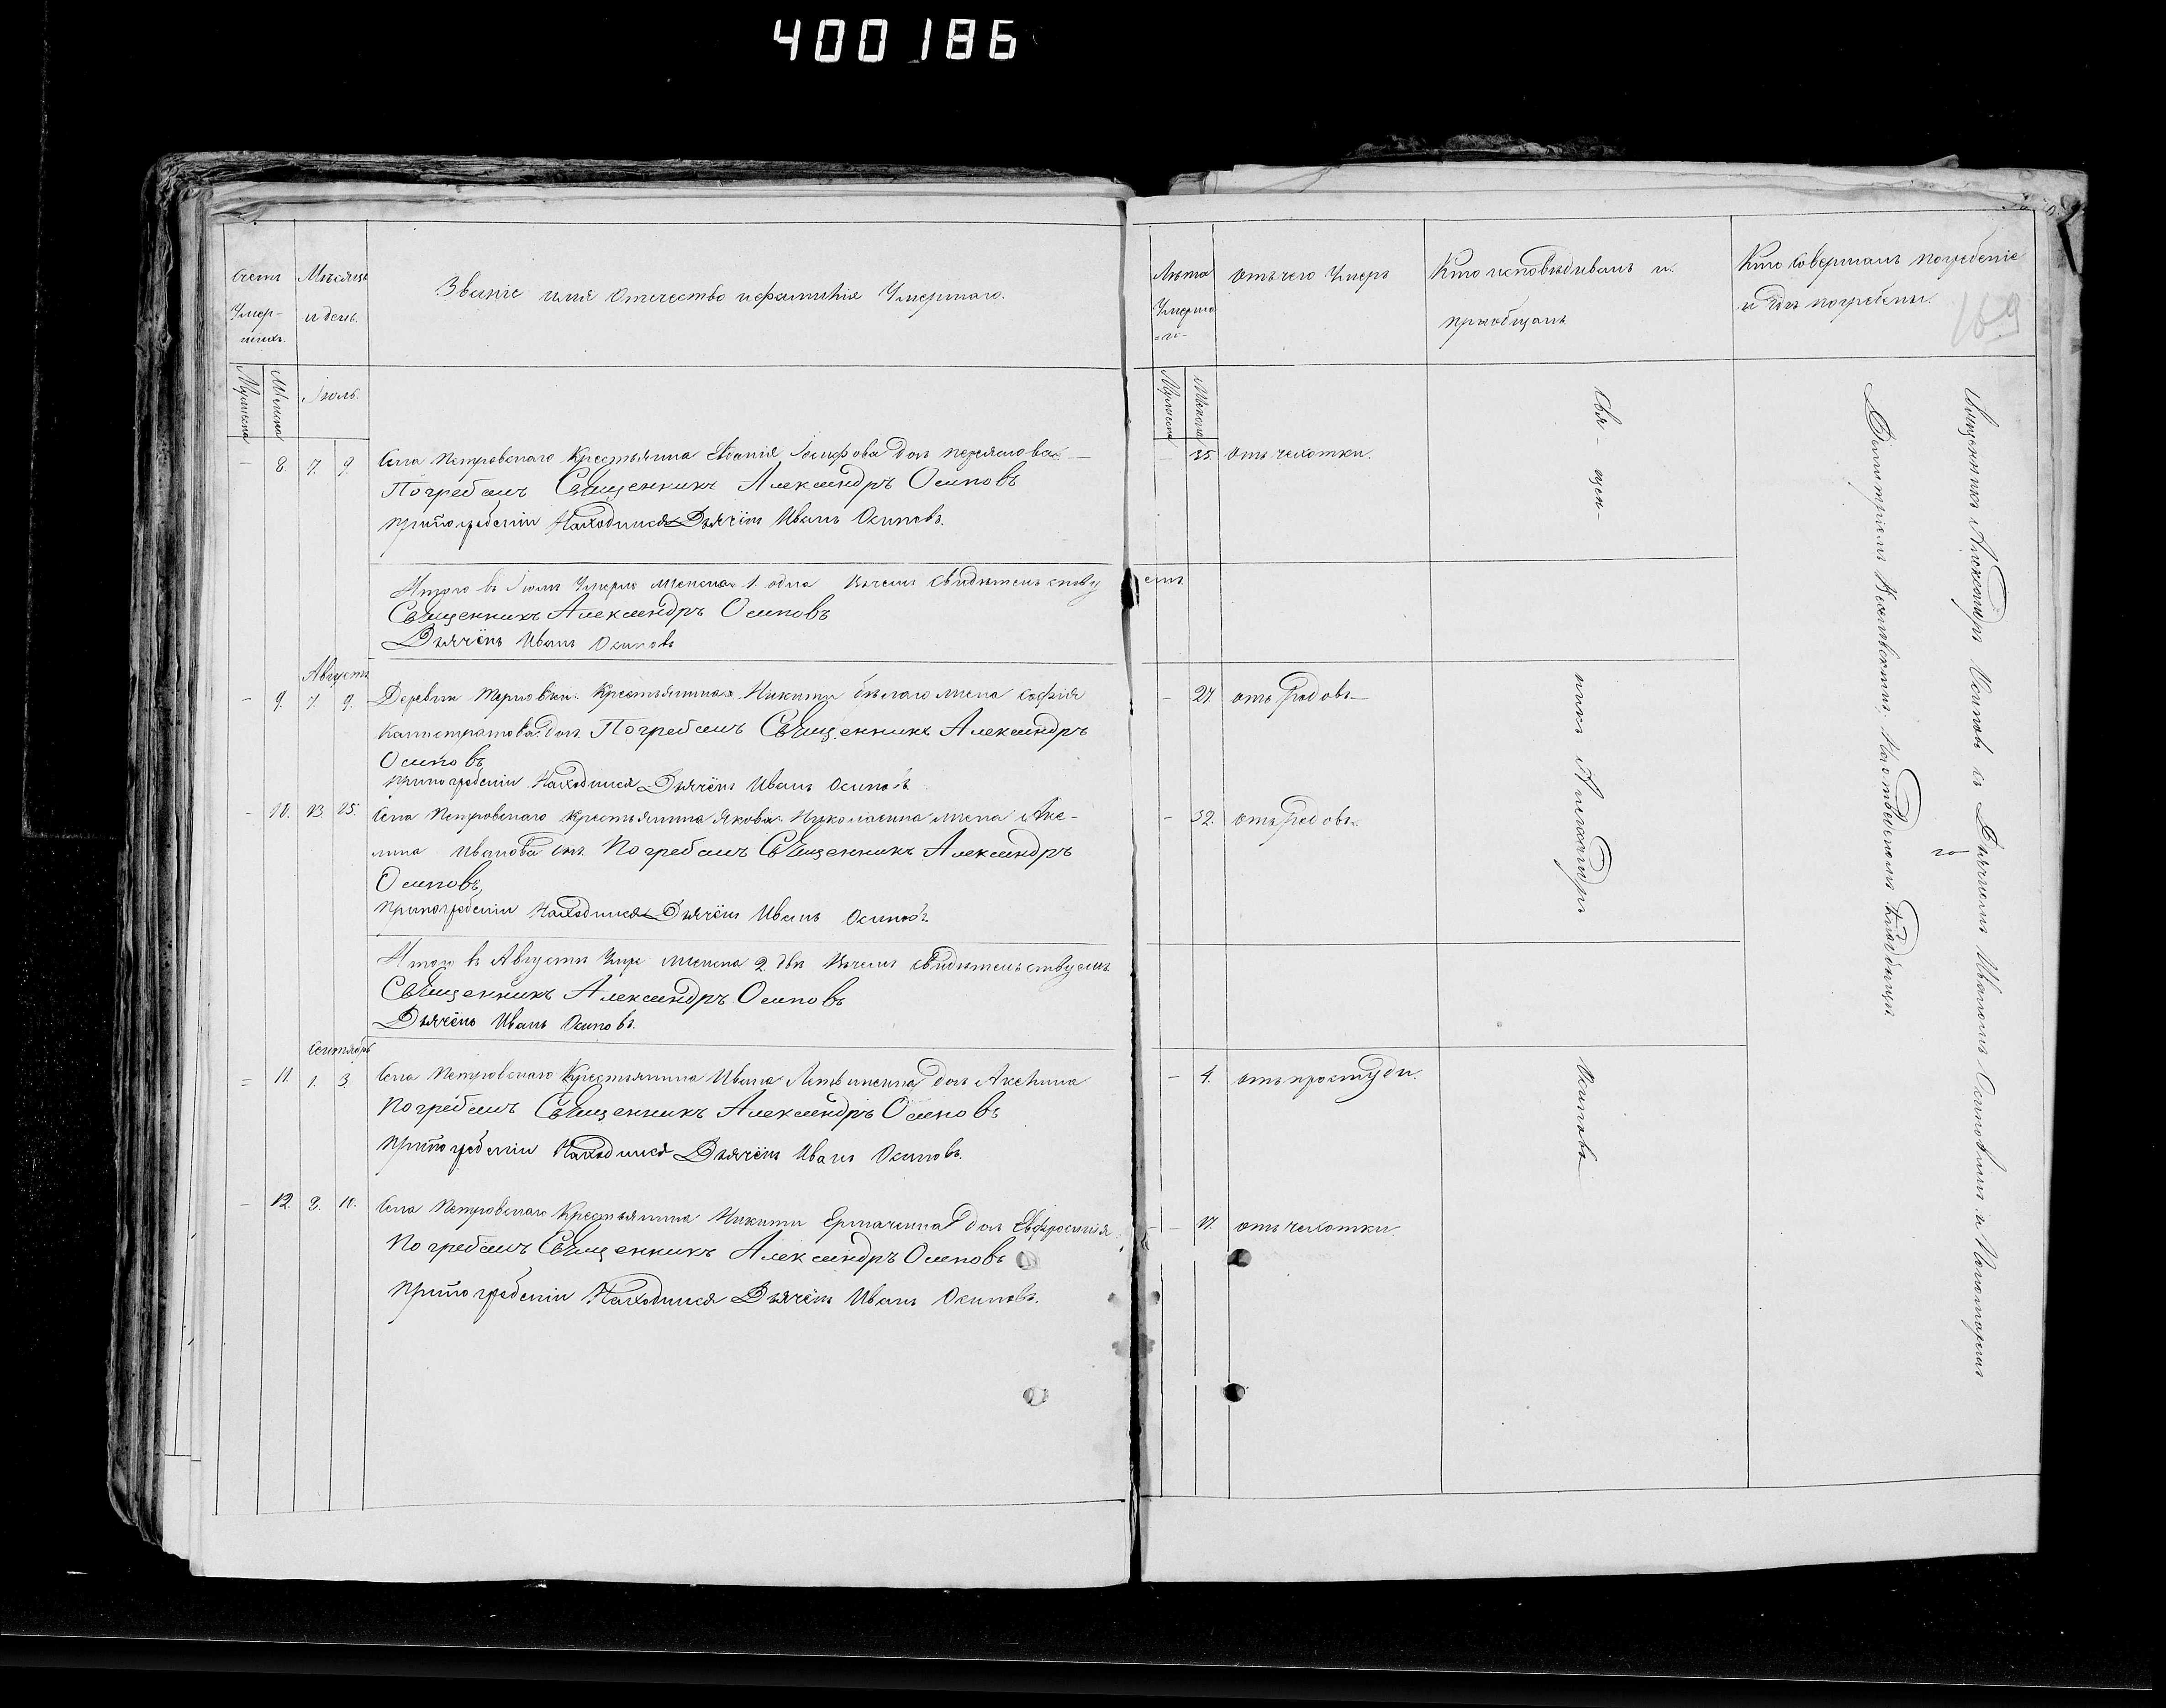 400186
Счетъ Умер-шихъ.
Мѣсяцъ и день.
Званіе имя Отечество и фамилія Умершаго.
Лѣта Умерша-го
отъ чего Умеръ
Кто исповѣдивалъ и пріобщалъ
Кто Совершалъ погребеніе и гдѣ погребены.
169
Мужеска
Женска
Іюль.
Мужеска
Женска
— 8. 7. 9. Села Петровскаго Крестьянина Іосифова дочь
35. отъ чехотки.
Погребалъ Священникъ Александръ Осиповъ
при погребеніи Находился Дьячёкъ Иванъ Осиповъ.
Итого въ Іюлѣ Умерло женска 1. одна Въ чемъ свидѣтельствуемъ
Священникъ Александръ Осиповъ
Дьячёкъ Иванъ Осиповъ
Августъ
— 9. 7. 9. Деревни Крестьянина Никити жена Софія
— 27. отъ Родовъ
Калистратова дочь Погребалъ Священникъ Александръ
Осиповъ,
при погребеніи Находился Дьячёкъ Иванъ Осиповъ
— 10. 23 25. Села Петровскаго Крестьянина Якова жена Аке-
— 32. отъ Родовъ.
лина Иванова Погребалъ Священникъ Александръ
Осиповъ,
при погребеніи Находился Дьячёкъ Иванъ Осиповъ.
Итого въ Августѣ Умре женска 2 двѣ Въ чемъ свидѣтельствуемъ
Священникъ Александръ Осиповъ
Дьячёкъ Иванъ Осиповъ.
Сентябрь
— 11. 1. 3. Села Петровскаго Крестьянина Ивана Литвиненка дочь Акелина
— 4. отъ простуди.
Погребалъ Священникъ Александръ Осиповъ
при погребеніи Находился Дьячёкъ Иванъ Осиповъ.
— 12. 8. 10. Села Петровскаго Крестьянина Никити Ермаченка дочь Евфросинія
— 17. отъ чехотки.
Погребалъ Священникъ Александръ Осиповъ
при погребеніи Находился Дьячёкъ Иванъ Осиповъ.
Свя-щен-никъ Александръ Осиповъ
Священникъ Александръ Осиповъ съ Дьячкемъ Иваномъ Осиповымъ и Пономаремъ
Димитріемъ На приходскомъ Кладбищѣ.